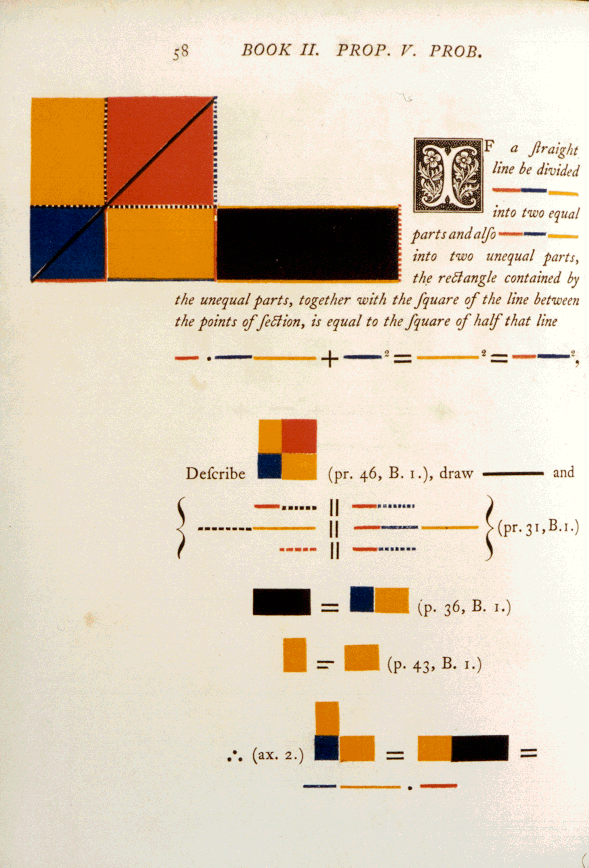 58 BOOK II. PROP. V. PROB.
IF a ſtraight
line be divided
into two equal
parts and alſo
into two unequal parts,
the rectangle contained by
the unequal parts, together with the ſquare of the line between
the points of ſection, is equal to the ſquare of half that line
· + ² = ² = ²,
Deſcribe (pr. 46, B. 1.), draw and
{ || || || } (pr. 31, B.1.)
= (p. 36, B. 1.)
= (p. 43, B. 1.)
∴ (ax. 2.) = =
·